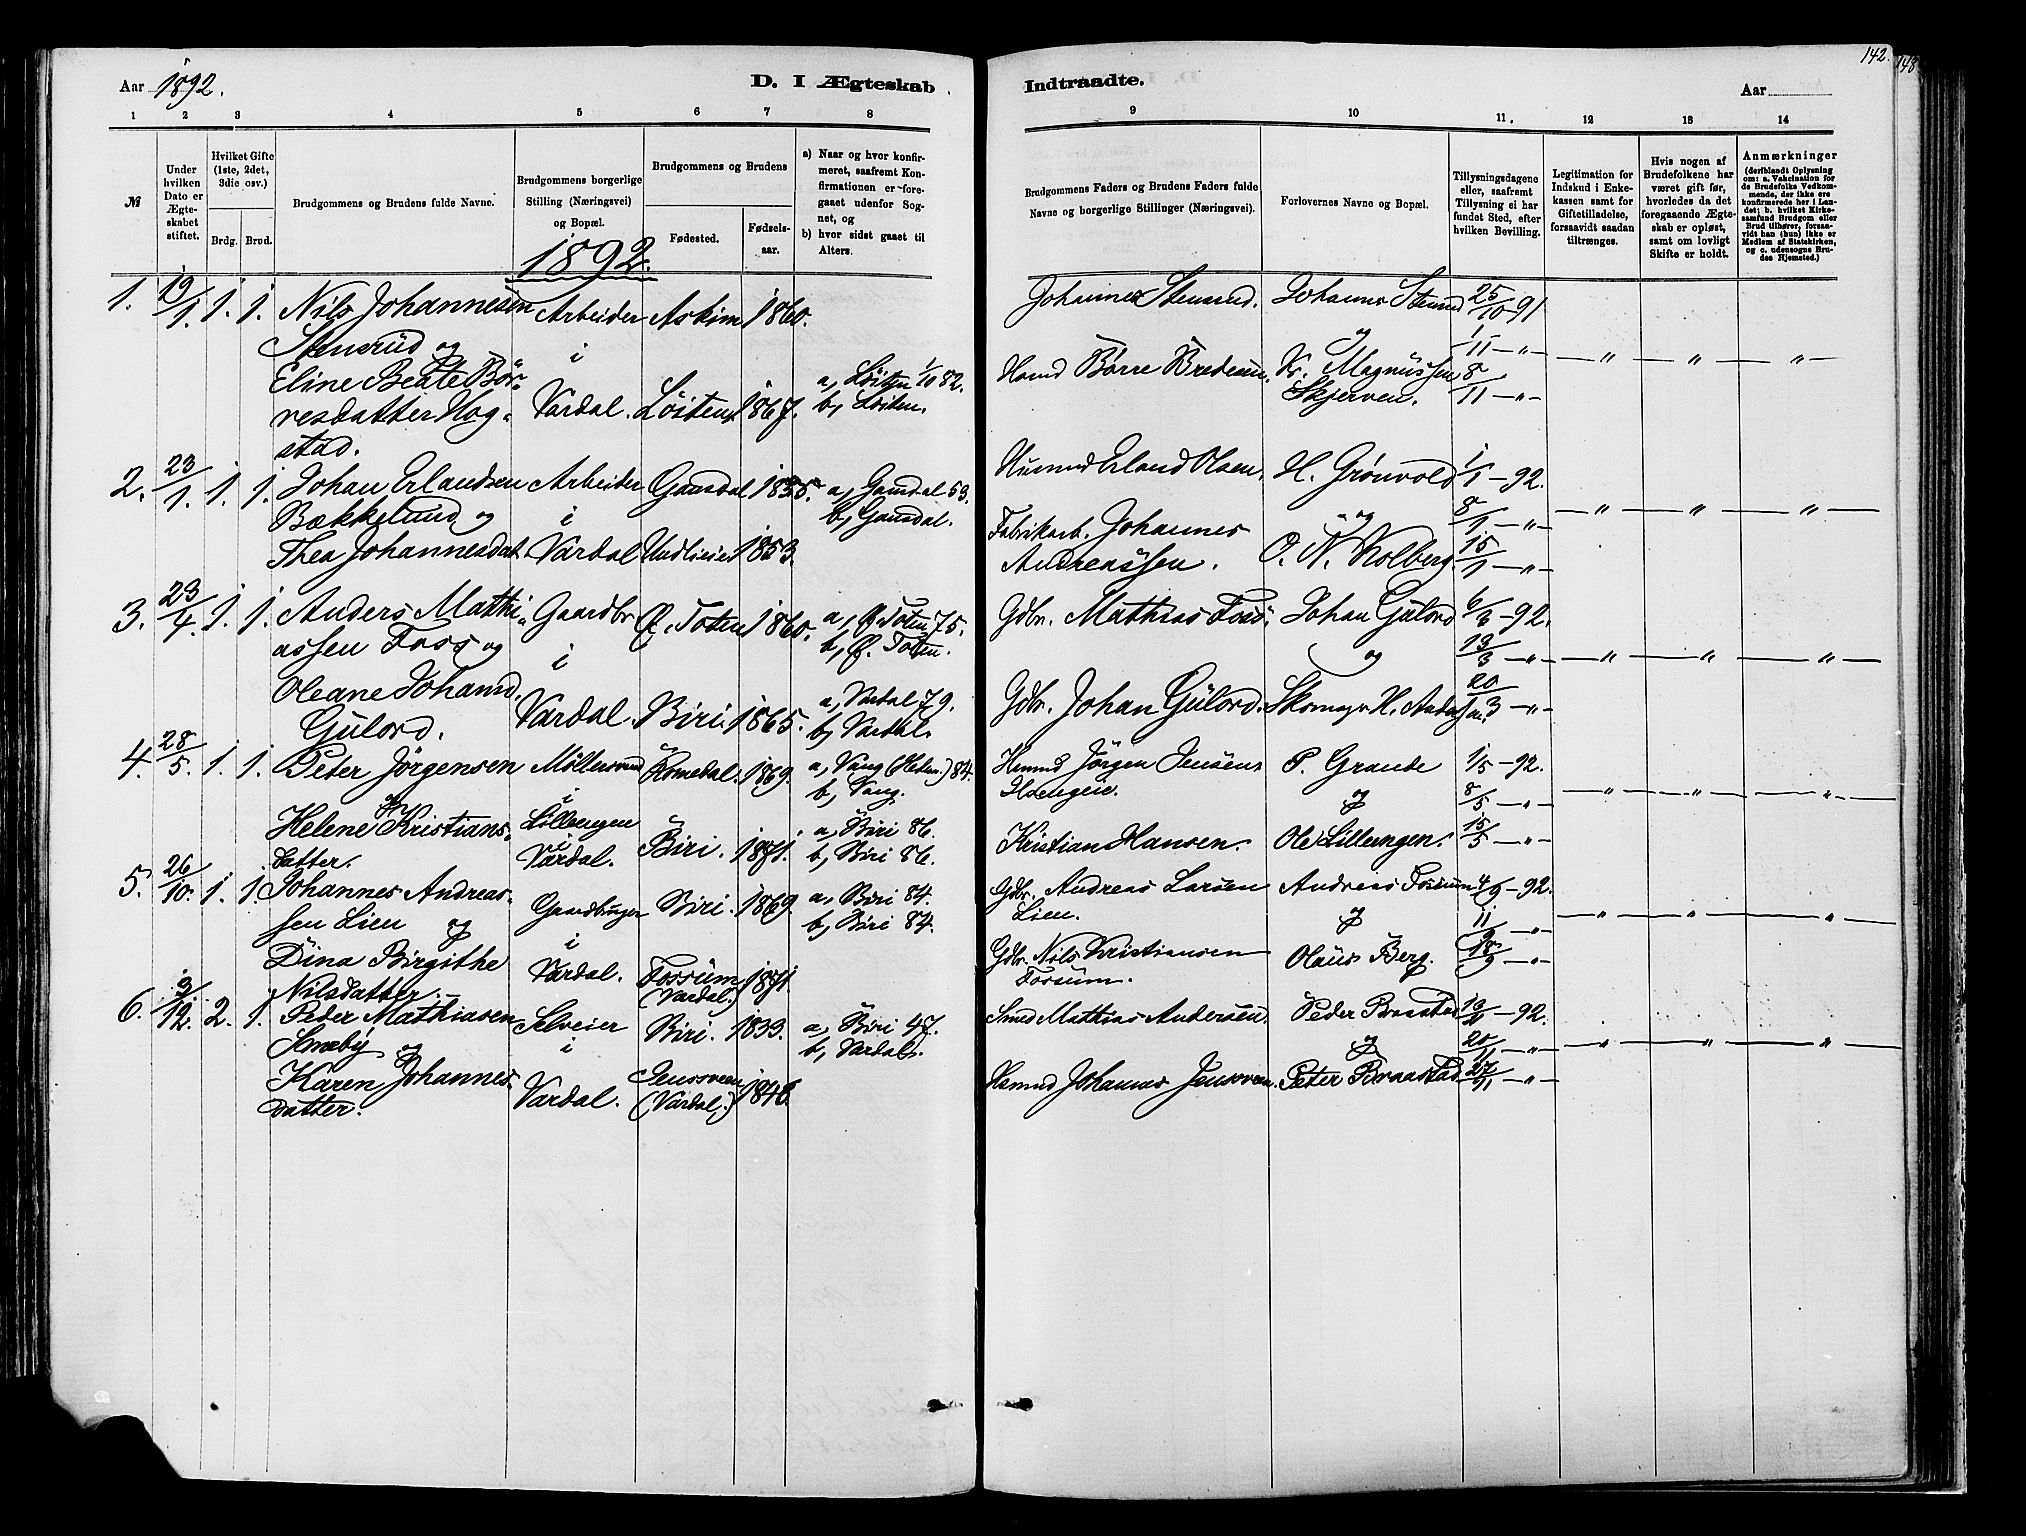 142.
148
Aar 1892.
D. I Ægteskab
Indtraadte.
Aar
1 2 3 4 5 6 7 8
9 10 11. 12 13 14
№
Under hvilken Dato er Ægteskabet stiftet.
Hvilket Gifte (1ste, 2det, 3die osv.)
Brdg. Brud.
Brudgommens og Brudens fulde Navne.
Brudgommens borgerlige Stilling (Næringsvei) og Bopæl.
Brudgommens og Brudens
Fødested.
Fødselsaar.
a) Naar og hvor konfirmeret, saafremt Konfirmationen er foregaaet udenfor Sognet, og
b) hvor sidst gaaet til Alters.
Brudgommens Faders og Brudens Faders fulde Navne og borgerlige Stillinger (Næringsvei).
Forlovernes Navne og Bopæl.
Tillysningsdagene eller, saafremt Tillysning ei har fundet Sted, efter hvilken Bevilling.
Legitimation for Indskud i Enkekassen samt for Giftetilladelse, forsaavidt saadan tiltrænges.
Hvis nogen af Brudefolkene har været gift før, hvorledes da det foregaaende Ægteskab er opløst, samt om lovligt Skifte er holdt.
Anmærkninger (deriblandt Oplysning om: a. Vakcination for de Brudefolks Vedkommende, der ikke ere konfirmerede her i Landet; b. hvilket Kirkesamfund Brudgom eller Brud tilhører, forsaavidt han (hun) ikke er Medlem af Statskirken, og c. udensogns Brudes Hjemsted.)
1892.
1. 19/1. 1. 1. Nils Johannesen Arbeider Askim 1860. Johannes Stensrud. Johannes Stensrud 25/10 - 91
Stensrud og i og 1/11 - "-
Eline Beate Bör- a, Löiten 1/10 82. Børre Bredesen. Kr. Magnussen 8/11 - "-
resdatter Hog- Vardal. Löiten 1867. b, Löiten. Skjerven.
stad.
2. 23/1. 1. 1. Johan Erlandsen Arbeider Gausdal 1835. a, Gausdal 53. Husmd Erland Olsen. H. Grönvold 1/1 - 92.
Bækkelund og i b, Gausdal. Fabrikarb. Johannes og 8/1 - "-
Thea Johannesdat. Vardal 1853. Andreassen. O. N. Kolberg. 15/1 - "-
3. 23/4. 1. 1. Anders Mathi- Gaardbr. Ø. Toten 1860. a, Ø. Toten 75. Gdbr. Mathias Foss. Johan Gülord 6/3 - 92.
assen Foss og i b, Ø. Toten. og 13/3 - "-
Oleane Johansd. Vardal. Biri. 1865. a, Vardal 79. Gdbr. Johan Gülord. Skomagr H. Andersen. 20/3 - "-
Gülord. b, Vardal.
4. 28/5. 1. 1. Peter Jørgensen Møllersvend Romedal. 1869. a, Vang (Hedem.) 84. Husmd Jörgen Jensen P. Grande 1/5 - 92.
og i b, Vang. og 8/5 - "-
Helene Kristians- Lillengen i Biri. 1871. a, Biri 86. Kristian Hansen. Ole Lillengen. 15/5 - "-
datter. Vardal. b, Biri 86.
5. 26/10. 1. 1. Johannes Andreas- Gaardbruger Biri. 1869. a, Biri 84. Gdbr. Andreas Larsen Andreas Fossum 4/9 - 92.
sen Lien og i b, Biri 84. Lien. og 11/9 - "-
Dina Birgithe Vardal. Fossum 1871. Gdbr. Nils Kristiansen Olaus Berg. 18/9 - "-
Nilsdatter. (Vardal.) Fossum.
6. 3/12. 2. 1. Peder Mathiasen Selveier Biri. 1833. a, Biri 47. Smed Mathias Andersen. Peder Braastad 13/11 - 92.
Smeby og i b, Vardal. og 20/11 - "-
Karen Johannes- Vardal. Jensveen 1846. Husmd Johannes Jensveen. Peter Braastad 27/11 - "-
datter. (Vardal.)